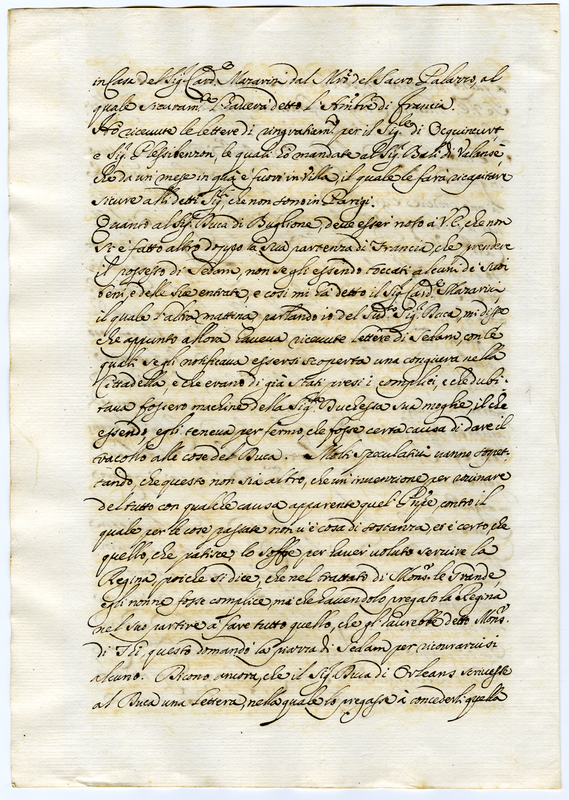 in Casa del Sig.r Card.e Mazarini dal Mro del Sacro Palazzo, al
quale sicuram.te l'haverà detto l'Amb.re di francia.
Ho ricevute le lettere di ringratiam.ti per il Sig.re di Ocquincurt
e Sig.r Plessibenzon, le quali hò mandate al Sig.r Balì di Valansé
che da un mese in quà è fuori in Villa, il quale le farà ricapitare
sicure alli detti Sig.ri che non sono in Parigi.
Quanto al Sig.r Duca di Buglione, deve esser noto à V.E. che non
si è fatto altro doppo la sua partenza di Francia, che prendere
il possesso di Sedam, non se gli essendo toccati alcuni de suoi
beni, e delle sue entrate, e così mi hà detto il Sig.r Card.e Mazarini
il quale l'altra mattina parlando io del Sud.to Sig.r Duca, mi disse
che appunto allora haveva ricevute lettere di Sedam, con le
quali se gli notificava essersi scoperta una congiura nella
Cittadella e che erano di già stati presi i complici, e che dubi-
tava fossero machine della Sig.ra Duchessa sua moglie, il che
essendo, egli teneva per fermo che fosse certa causa di dare il
tracollo alle cose del Duca. Molti speculativi vanno sospet-
tando, che questo non sia altro, che un'invenzione per rovinare
del tutto con qualche causa apparente quel Pnpe, contro il
quale per le cose passate non v'è cosa di sostanza, et è certo, che
quello, che patisce lo soffre per haver voluto servire la
Regina, poiche si dice, che nel trattato di Mons.r le Grande,
egli non ne fosse complice, mà che havendolo pregato la Regina
nel suo partire à fare tutto quello, che gl'haurebbe detto Mons.r
di Tù, questo domandò la piazza di Sedam per ricovrarvisi
alcuno. Dicono ancora, che il Sig.r Duca di Orleans scrivesse
al Duca una lettera, nella quale lo pregasse à concederli quella